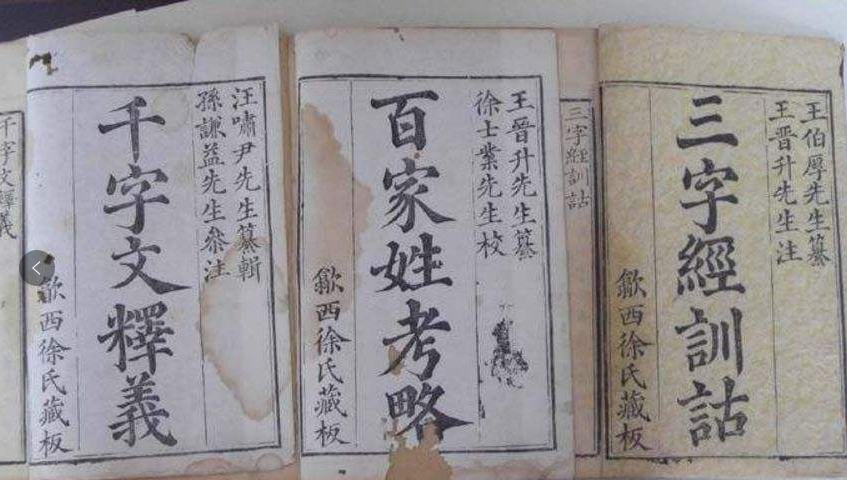 王伯厚先生纂
王晉升先生注
三字經訓詁
歙西徐氏藏板
三字經訓詁
王晉升先生纂
徐士業先生校
百家姓考略
歙西徐氏藏板
汪嘯尹先生纂輯
孫謙益先生參注
千字文釋義
歙西徐氏藏板
千字文釋義